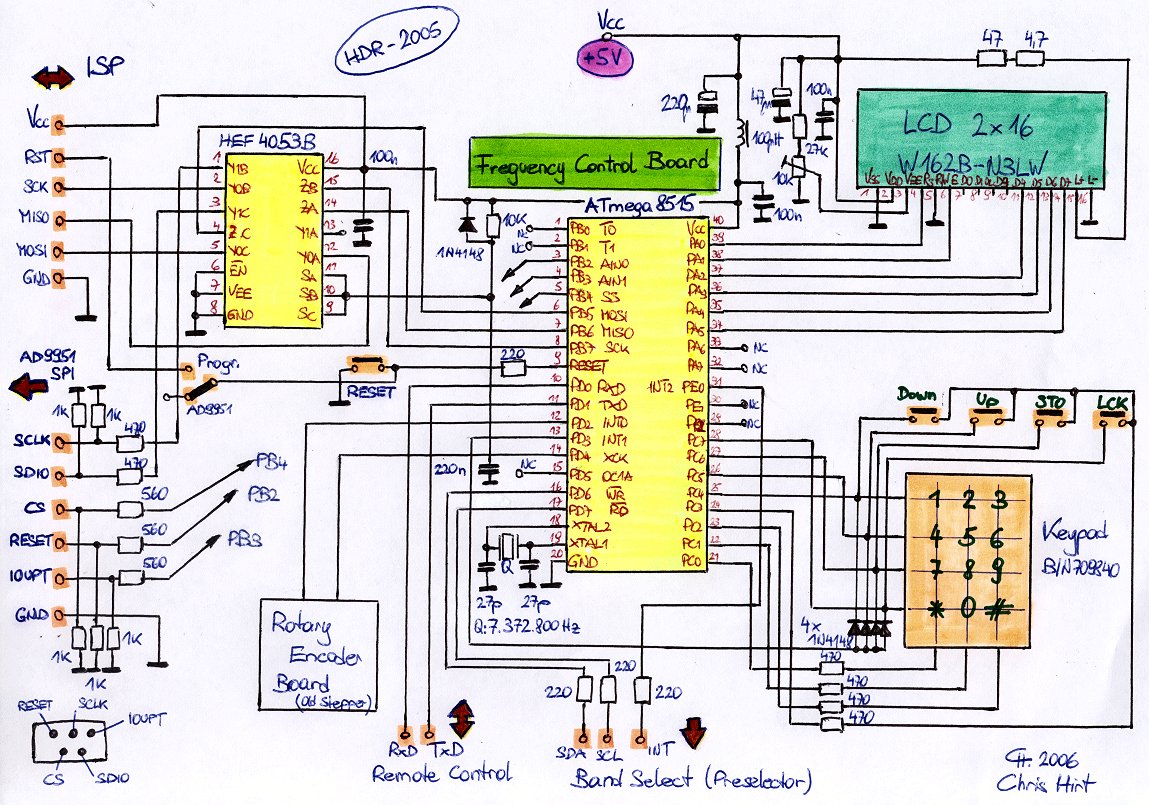 HDR-2005
Vcc
+5V
ISP
Vcc
RST
SCK
MISO
MOSI
GND
HEF 4053B
1 Y1B
2 Y0B
3 Y1C
4 Z.C
5 Y0C
6 EN
7 VEE
8 GND
VCC 16
ZB 15
ZA 14
Y1A 13
Y0A 12
SA 11
SB 10
SC 9
100n
Frequency Control Board
220µ
100µH
47µ
100n
27K
10K
100n
47
4,7
LCD 2x16
W162B-N3LW
VSS VDD VEE RS R/W E D0 D1 D2 D3 D4 D5 D6 D7 L+ L-
1 2 3 4 5 6 7 8 9 10 11 12 13 14 15 16
1N4148
10K
NC
NC
ATmega 8515
1 PB0 T0
2 PB1 T1
3 PB2 AIN0
4 PB3 AIN1
5 PB4 SS
6 PB5 MOSI
7 PB6 MISO
8 PB7 SCK
9 RESET
10 PD0 RXD
11 PD1 TXD
12 PD2 INT0
13 PD3 INT1
14 PD4 XCK
15 PD5 OC1A
16 PD6 WR
17 PD7 RD
18 XTAL2
19 XTAL1
20 GND
Vcc 40
PA0 39
PA1 38
PA2 37
PA3 36
PA4 35
PA5 34
PA6 33
PA7 32
INT2 PE0 31
PE1 30
29
PC7 28
PC6 27
PC5 26
PC4 25
PC3 24
PC2 23
PC1 22
PC0 21
NC
NC
NC
NC
AD9951
SPI
Progr.
AD9951
RESET
220
1K
1K
SCLK
470
SDIO
470
CS
560
PB4
RESET
560
PB2
IOUPT
560
PB3
GND
1K
1K
1K
220n
NC
Q
27p
27p
Q: 7.372.800 Hz
Rotary
Encoder
Board
(Old Stepper)
Down
Up
STO
LCK
1 2 3
4 5 6
7 8 9
* 0 #
Keypad
B/N709840
4x
1N4148
470
470
470
470
220
220
220
RESET
SCLK
IOUPT
CS
SDIO
RxD
TxD
Remote Control
SDA
SCL
INT
Band Select (Preselector)
CH. 2006
Chris Hirt